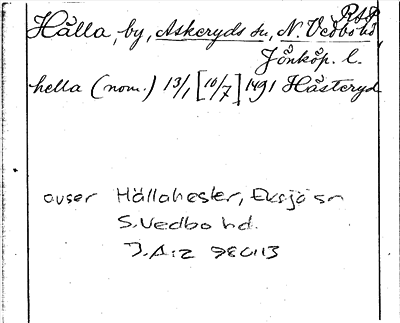 RAP
Hålla, by, Askeryds sn, N. Vedbo hd
Jönköp. l.
hella (nom.) 13/1 [10/7] 1491 Håsteryd
avser Hållahester, Eksjö sn
S. Vedbo hd.
J.A:2 980113